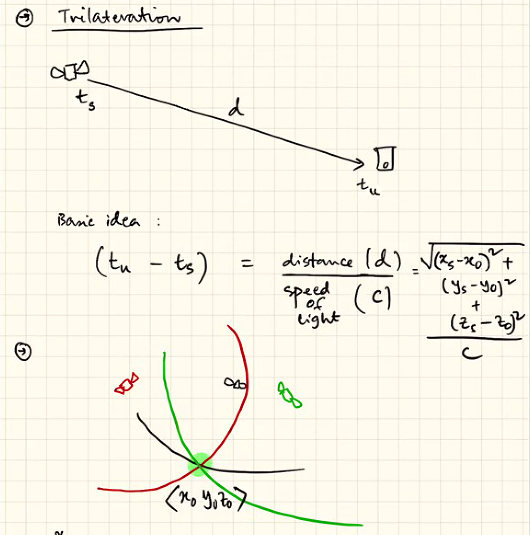 Trilateration
t_s
d
t_u
Basic idea :
(t_u - t_s) = distance (d) / speed of light (c) = √((x_s-x_0)² + (y_s-y_0)² + (z_s-z_0)²) / c
(x_0 y_0 z_0)